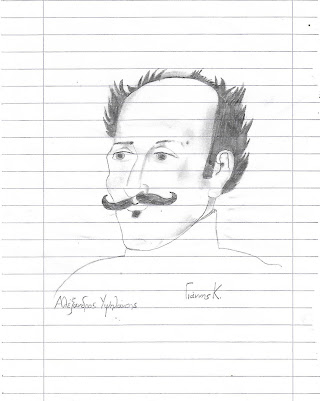 Αλέξανδρος Υψηλάντης
Γιάννης Κ.